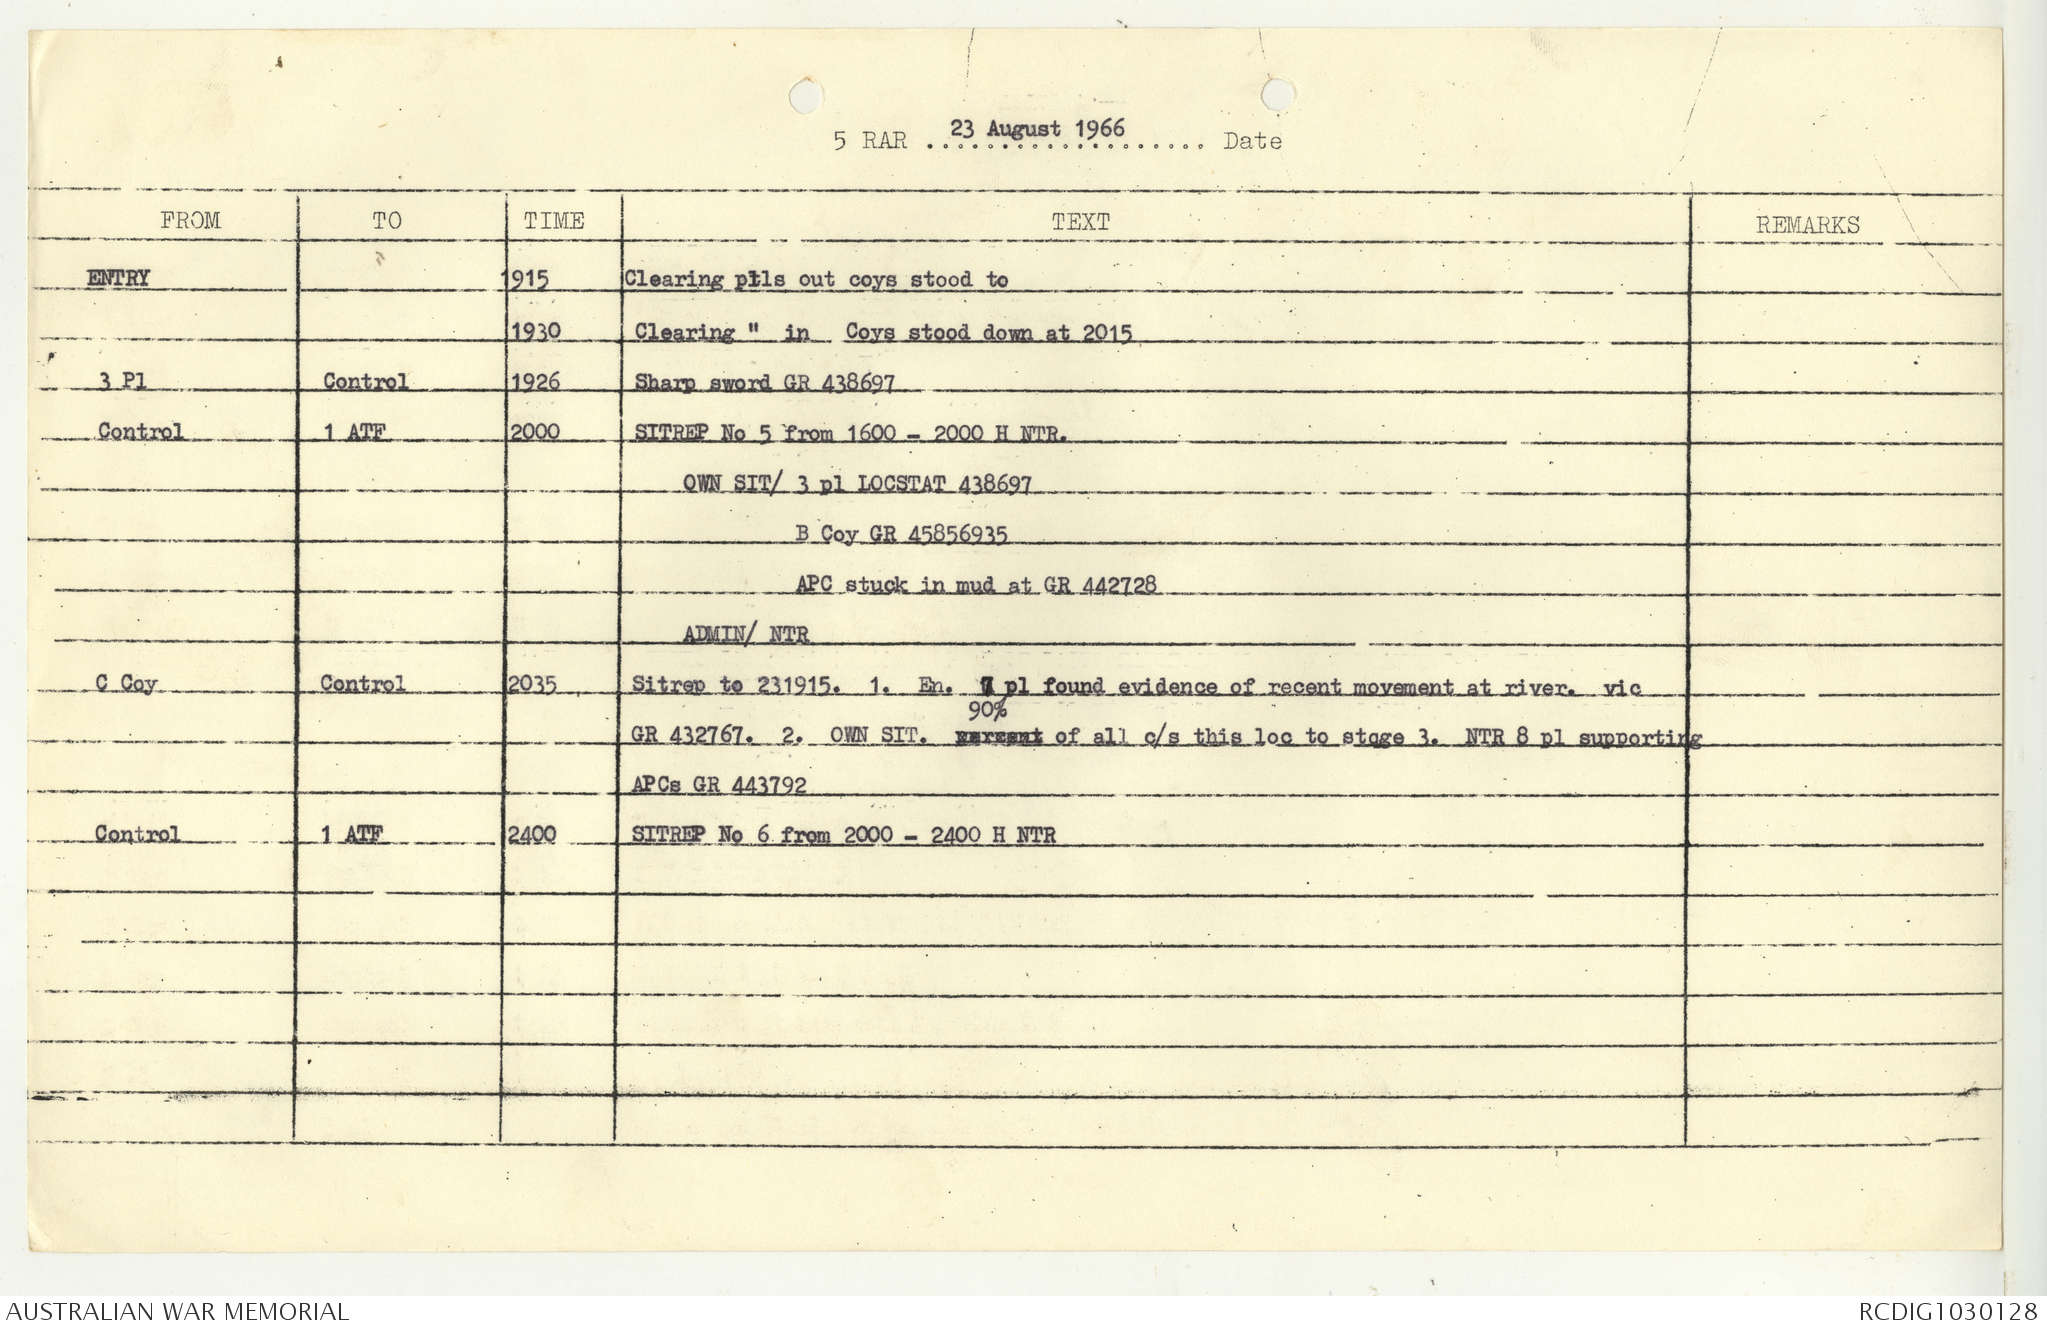 5 RAR 23 August 1966 Date
FROM TO TIME TEXT REMARKS
ENTRY 1915 Clearing ptls out coys stood to
1930 Clearing " in Coys stood down at 2015
3 Pl Control 1926 Sharp sword GR 438697
Control 1 ATF 2000 SITREP No 5 from 1600 - 2000 H NTR.
OWN SIT/ 3 pl LOCSTAT 438697
B Coy GR 45856935
APC stuck in mud at GR 442728
ADMIN/ NTR
C Coy Control 2035 Sitrep to 231915. 1. En. 7 pl found evidence of recent movement at river. vic
90%
GR 432767. 2. OWN SIT. of all c/s this loc to stage 3. NTR 8 pl supporting
APCs GR 443792
Control 1 ATF 2400 SITREP No 6 from 2000 - 2400 H NTR
AUSTRALIAN WAR MEMORIAL RCDIG1030128